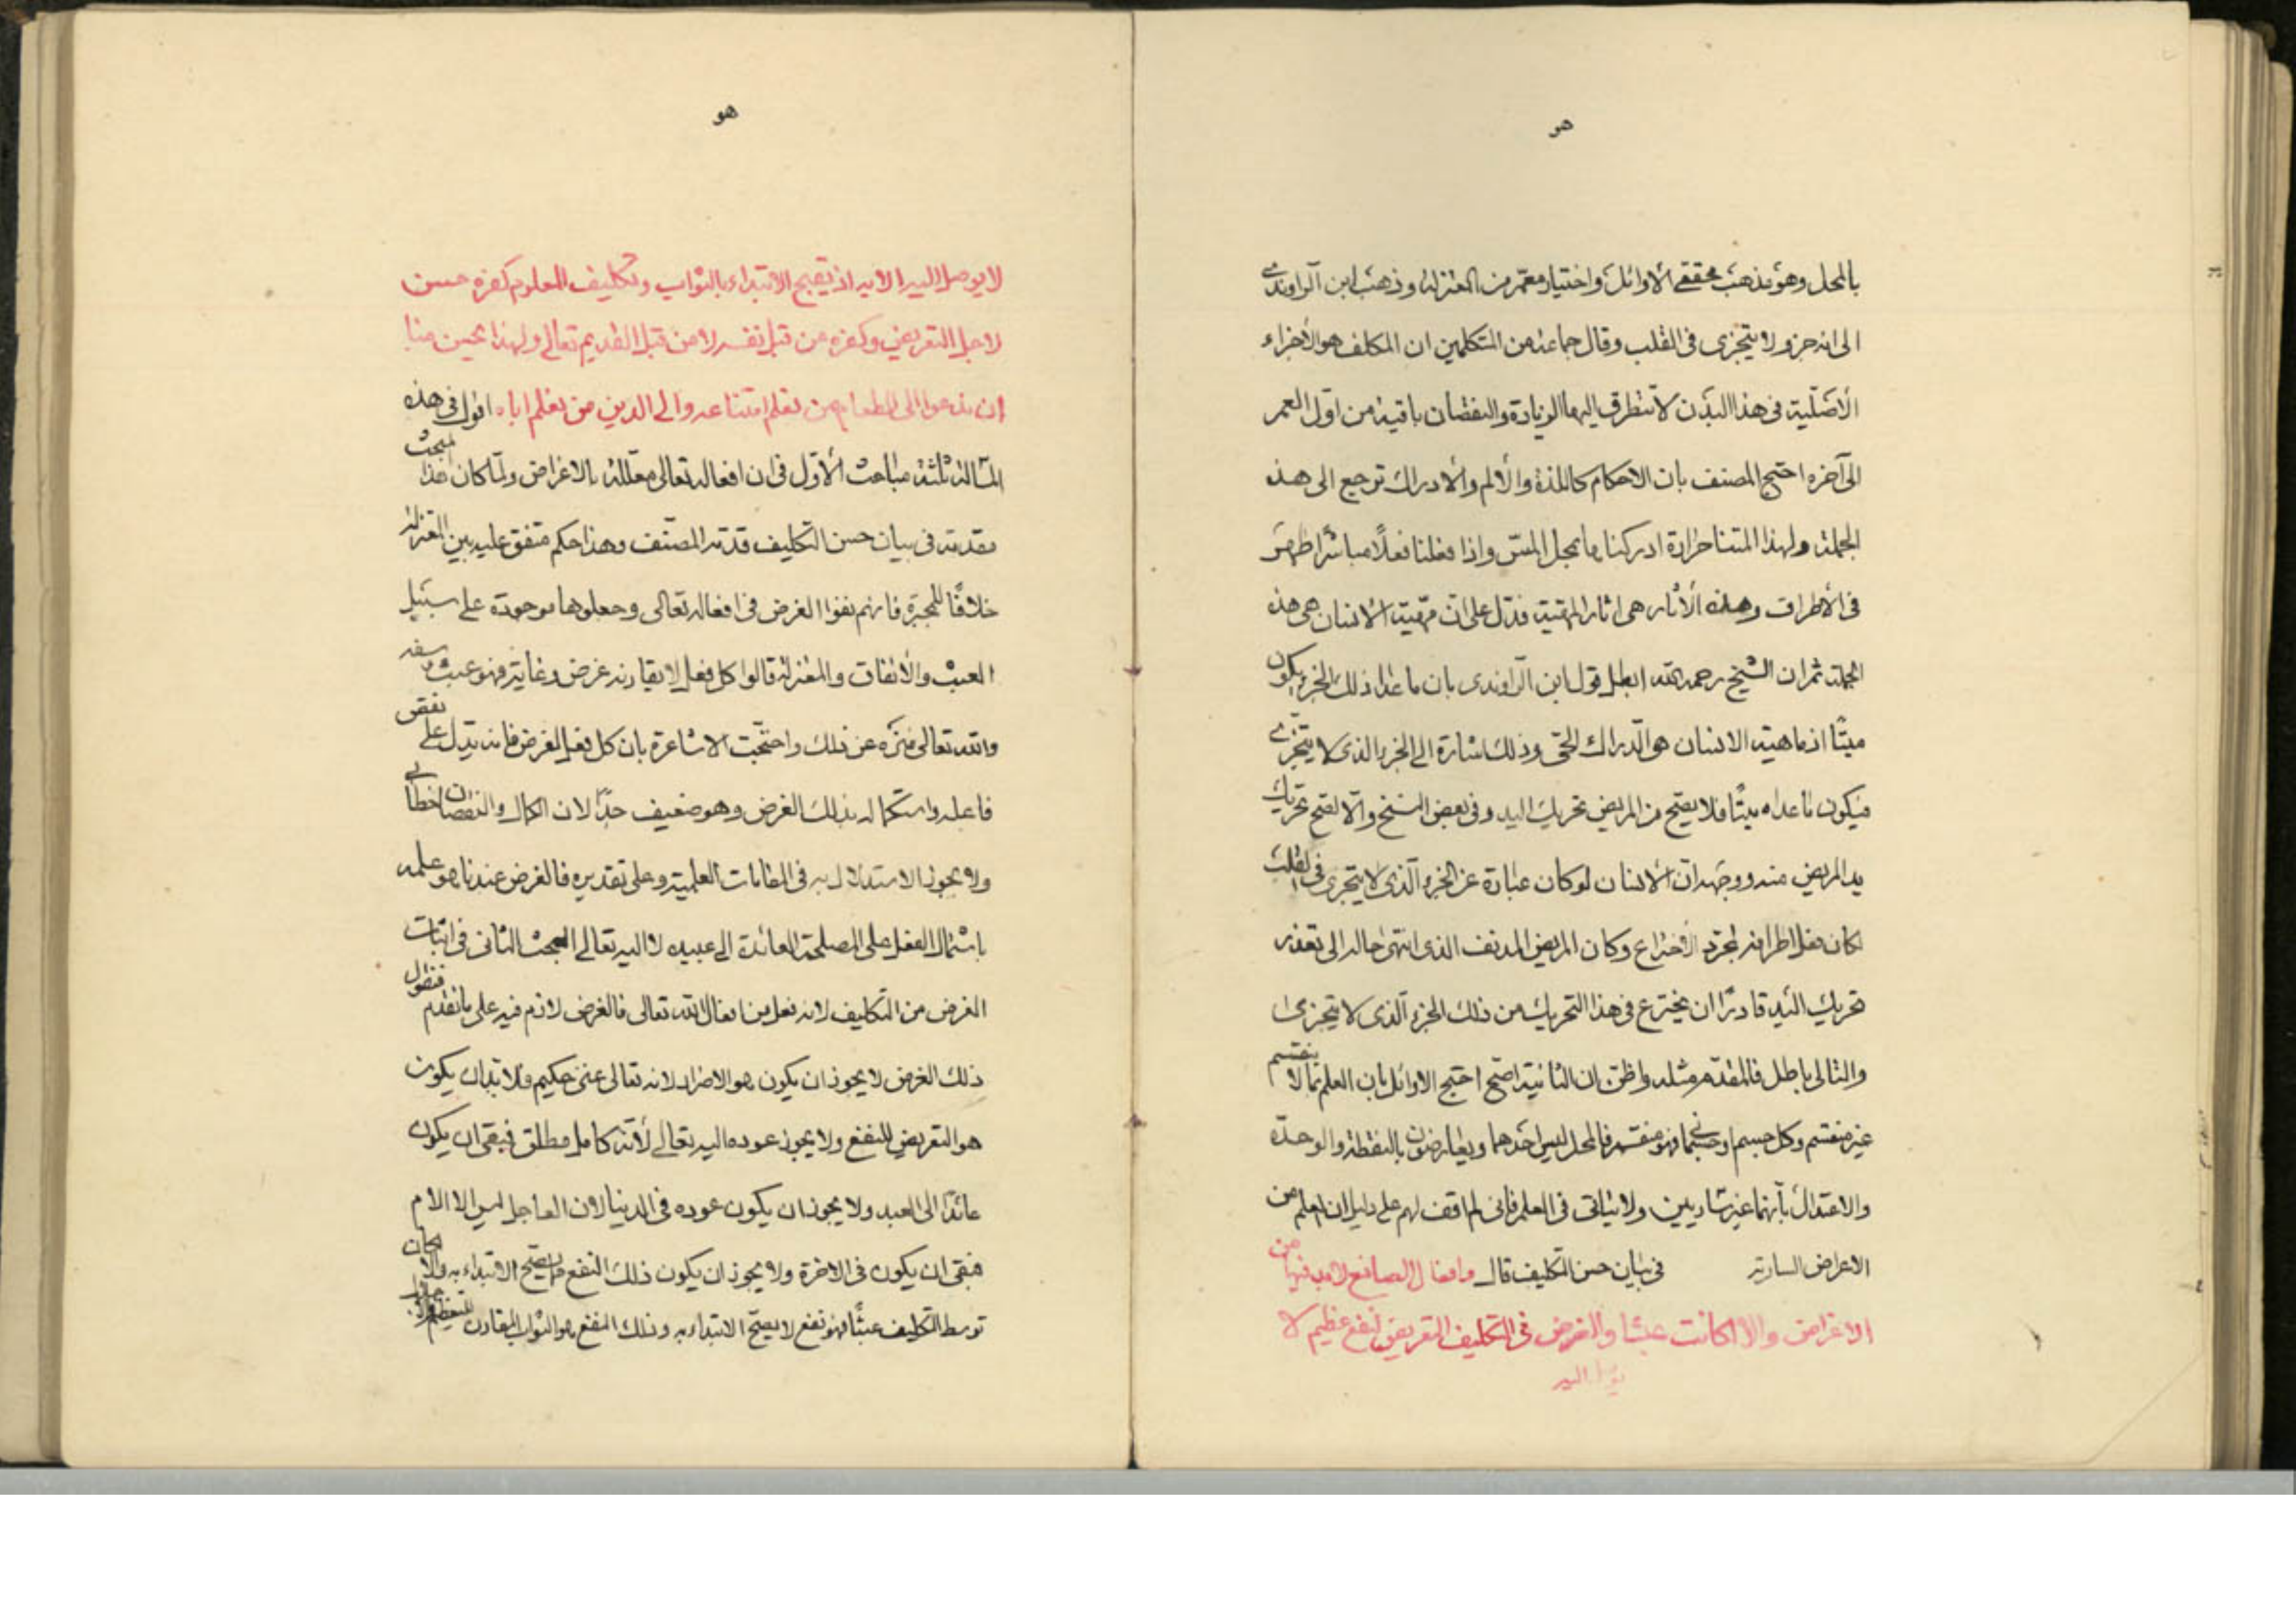 هو
بالمحل وهو مذهب محققي الاوائل واختيار معمر من المعتزلة وذهب ابن الراوندي
الى انه جزو لا يتجزى فى القلب وقال جماعة من المتكلمين ان المكلف هو الأجزاء
الأصلية فى هذا البدن لا تتطرق اليها الزيادة والنقصان باقية من اول العمر
الى آخره احتج المصنف بان الاحكام كاللذة والألم والادراك ترجع الى هذه
الجملة ولهذا المتنا حرارة ادركناها بمحل المس واذا فعلنا فعلًا مباشرا ظهرت
فى الأطراف وهذه الأثار هى اثار المهية فدل على ان مهية الانسان هى هذه
الجملة ثم ان الشيخ رحمه الله ابطل قول ابن الراوندى بان ما عدا ذلك الجزء يكون
ميتًا اذ ماهية الانسان هو الدراك الحى وذلك اشارة الى الجزء الذى لا يتجزى
فيكون ما عداه ميتًا فلا يصح من المريض تحريك اليد وفى بعض النسخ والا لصح تحريك
يد المريض منه ووجهه ان الانسان لو كان عبارة عن الجزء الذى لا يتجزى فى القلب
لكان فعل اطرافه لمجرد الاختراع وكان المريض المدنف الذى انتهى حاله الى تعذر
تحريك اليد قادرًا ان يخترع فى هذا التحريك من ذلك الجزء الذى لا يتجزى
والتالى باطل فالمقدم مثله واظن ان الثانية اصح احتج الاوائل بان العلم بما لا ينقسم
غير منقسم وكل جسم او جسمانى فهو منقسم فالمحل ليس احدهما ويعارضون بالنقطة والوحدة
والاعتذار بأنهما غير ساريين ولا يتأتى فى العلم فانى لم اقف لهم على دليل ان العلم من
الاعراض السارية فى بيان حسن التكليف قال وافعال الصانع لا بد فيها من
الاغراض والا لكانت عبثا والغرض فى التكليف التعريض لنفع عظيم لا
يوصل اليه
هو
لا يوصل اليه الا به اذ يقبح الابتداء بالثواب وتكليف المعلوم كفره حسن
لاجل التعريض وكفره من قبل نفسه لا من قبل القديم تعالى ولهذا يحسن منا
ان ندعوا الى الطعام من نعلم امتناعه والى الدين من نعلم اباه اقول فى هذه
المسالة ثلثة مباحث الأول فى ان افعاله تعالى معللة بالاغراض ولما كان هذا المبحث
مقدمة فى بيان حسن التكليف قدمه المصنف وهذا حكم متفق عليه بين المعتزلة
خلافًا للمجبرة فانهم نفوا الغرض فى افعاله تعالى وجعلوها موجودة على سبيل
العبث والأتفاق والمعتزلة قالوا كل فعل لا يقارنه غرض وغاية فهو عبث وسفه
والله تعالى منزه عن ذلك واحتجت الاشاعرة بان كل فعل لغرض فانه يدل على نقص
فاعله واستكماله بذلك الغرض وهو ضعيف جدًا لان الكمال والنقصان خطابى
ولا يجوز الاستدلال به فى المقامات العلمية وعلى تقديره فالغرض عندنا هو علمه
باشتمال الفعل على المصلحة العائدة الى عبيده لا اليه تعالى البحث الثانى فى اثبات
الغرض من التكاليف لانه فعل من افعال الله تعالى فالغرض لازم فيه على ما تقدم فنقول
ذلك الغرض لا يجوز ان يكون هو الاضرار لانه تعالى غنى حكيم فلا بد ان يكون
هو التعريض للنفع ولا يجوز عوده اليه تعالى لأنه كامل مطلق فبقى ان يكون
عائدًا الى العبد ولا يجوز ان يكون عوده فى الدنيا لان العاجل ليس الا الالام
فبقى ان يكون فى الاخرة ولا يجوز ان يكون ذلك النفع مما يصح الابتداء به والا لكان
توسط التكليف عبثًا فهو نفع لا يصح الابتداء به وذلك النفع هو الثواب المقارن للتعظيم